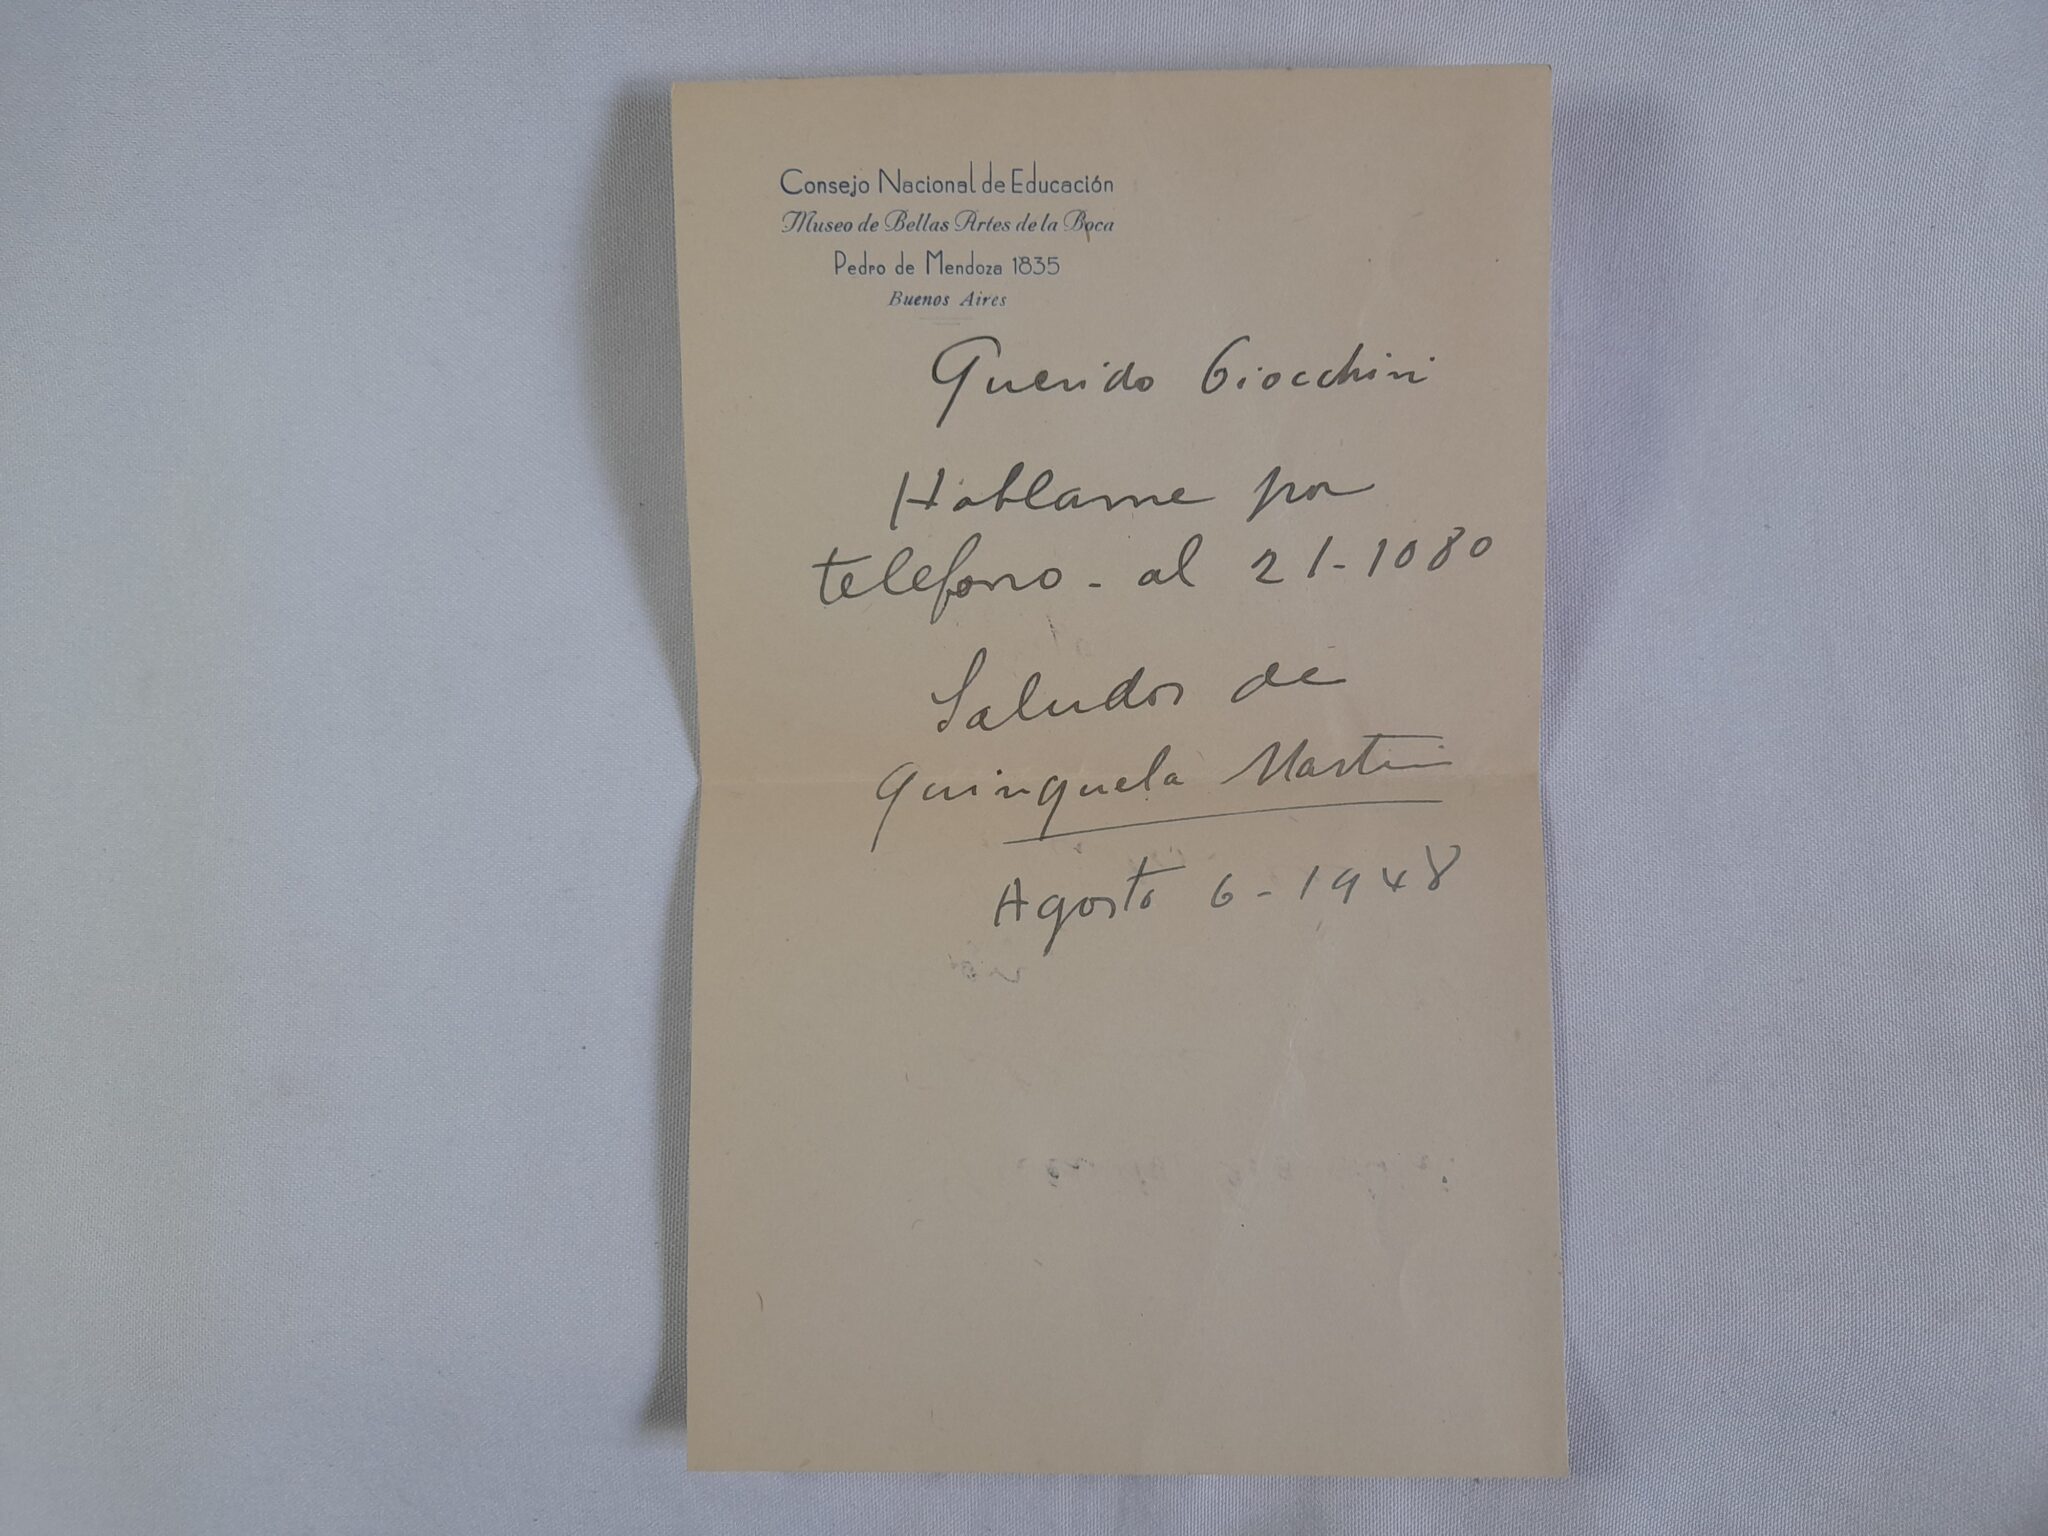 Consejo Nacional de Educación
Museo de Bellas Artes de la Boca
Pedro de Mendoza 1835
Buenos Aires
Querido Giocchini
Hablame por
telefono - al 21-1080
Saludos de
Quinquela Martin
Agosto 6-1948